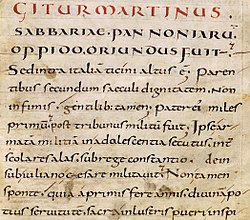 GITUR MARTINUS.
SABBARIAE·PANNONIARU·
OPPIDO·ORIUNDUS FUIT·
Sed intra italiā ticini altus ē; Paren
tibus secundum saeculi dignitatem. Non
infimis. gentilib; tamen. Pater ei miles
primū post tribunus militū fuit. Ipse ar
mata militiā in adolescentia secutus. int
scolares alas. sub rege constantio. dein
sub iuliano cesare militavit. Non tamen
sponte. quia a primis fere annis. divinā po
tius servitutē. sacra inlustris pueri spi